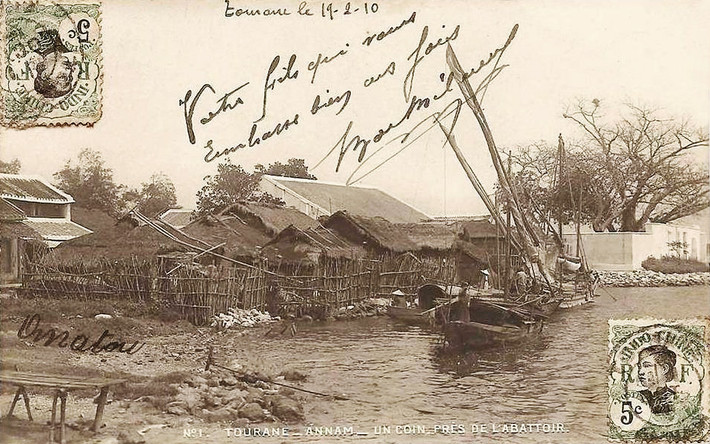 Tourane le 19-2-10
Votre fils qui vous
Embrasse bien des fois
Omatou
5
INDO-CHINE
R F
5c
INDO-CHINE
R F
5c
No1. TOURANE _ ANNAM _ UN COIN PRÈS DE L'ABATTOIR.